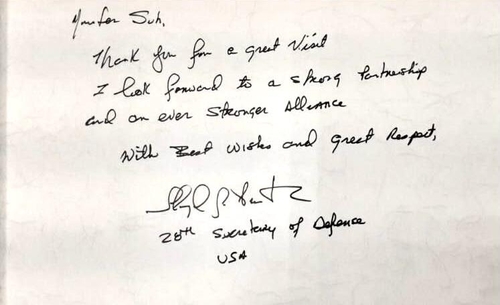 Minister Suh,
Thank you for a great Visit
I look forward to a strong Partnership
and an ever Stronger Alliance
With Best Wishes and great Respect,
28th Secretary of Defense
USA